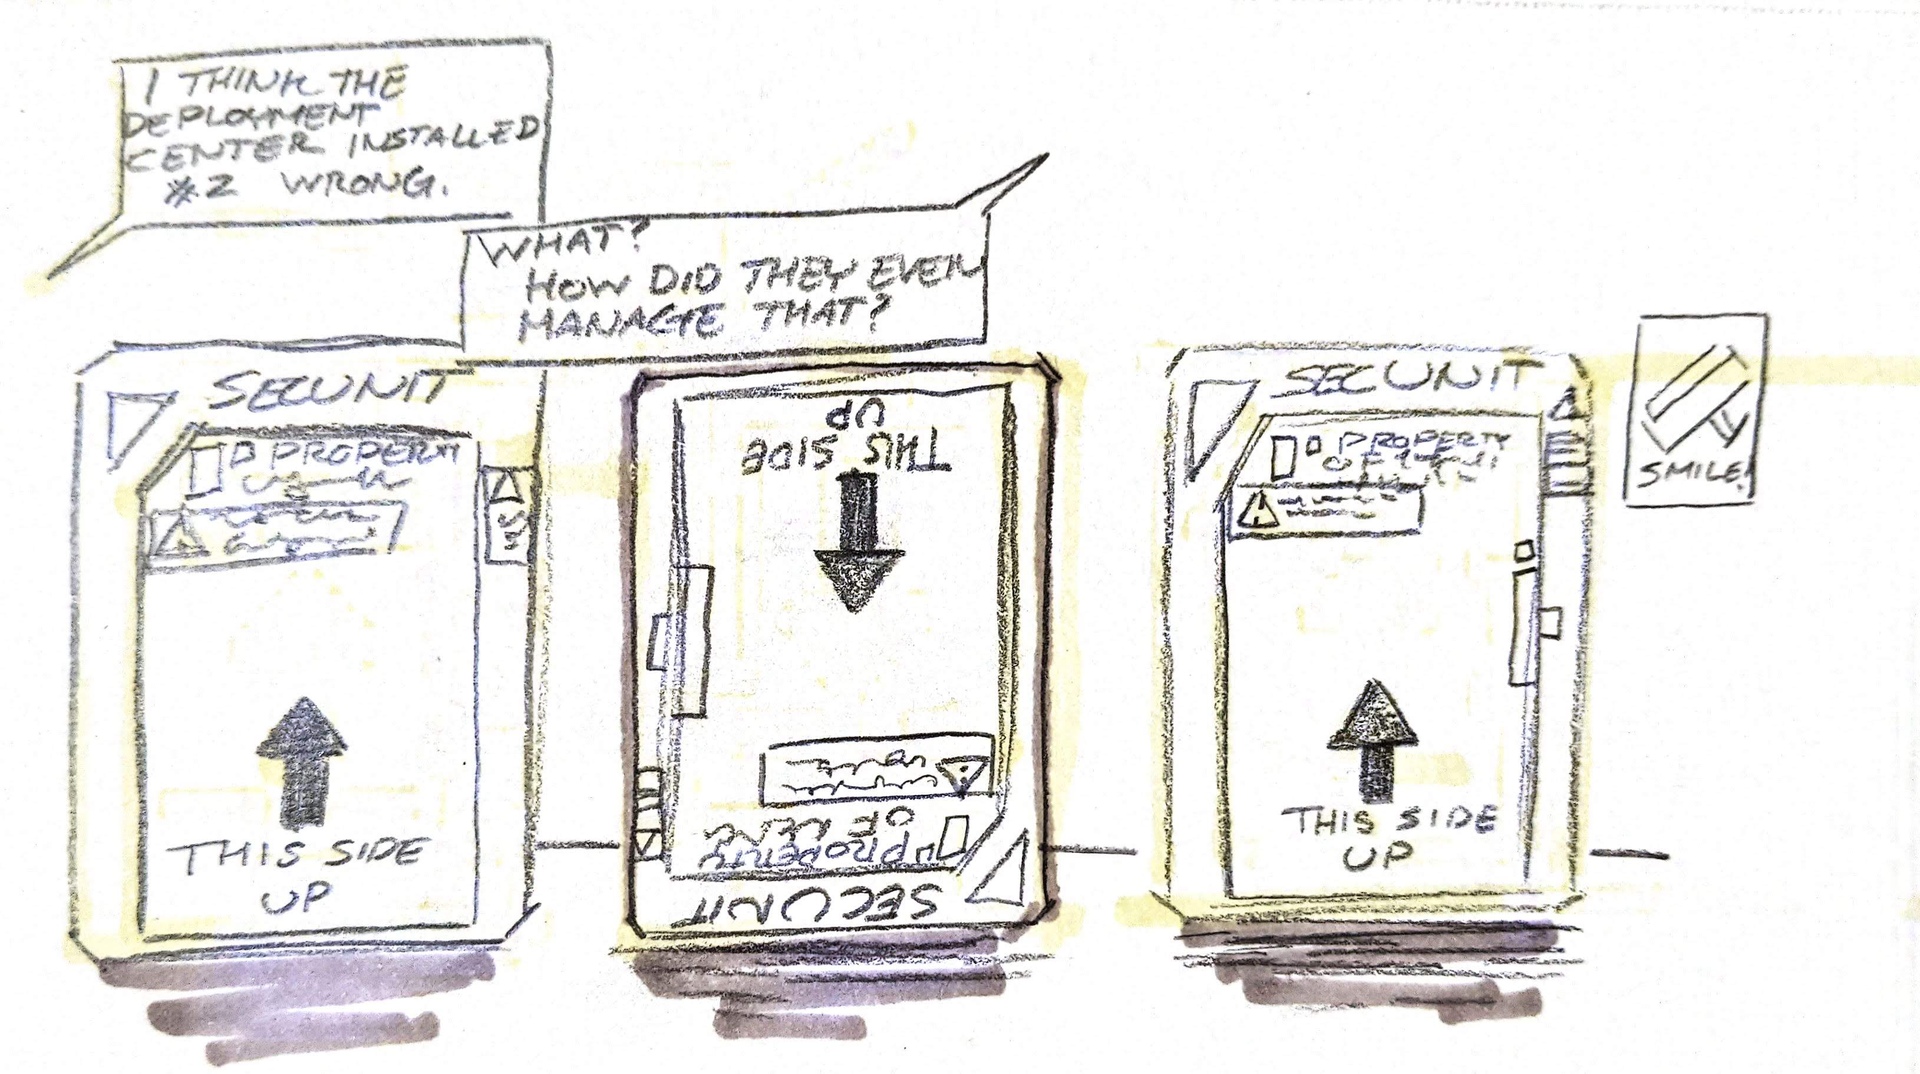 I THINK THE
DEPLOYMENT
CENTER INSTALLED
#2 WRONG.
WHAT?
HOW DID THEY EVEN
MANAGE THAT?
SECUNIT
PROPERTY
THIS SIDE
UP
THIS SIDE
UP
PROPERTY
OF
SECUNIT
SECUNIT
PROPERTY
OF
THIS SIDE
UP
SMILE!